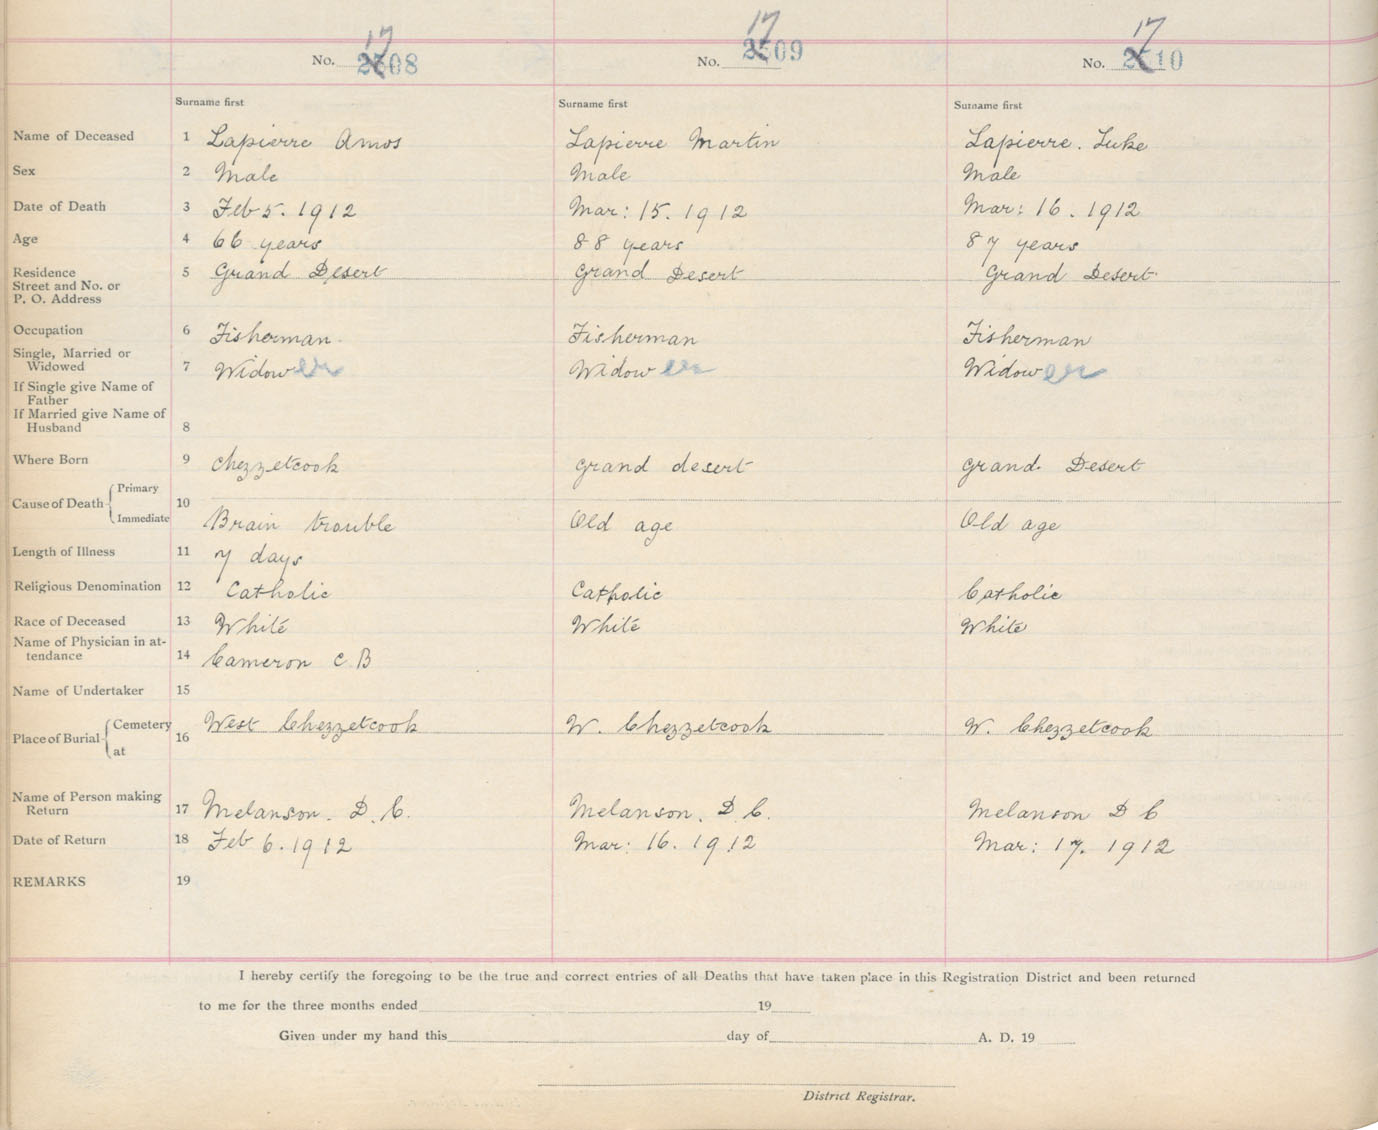 17 17 17
No. 2508 No. 2509 No. 2510
Surname first Surname first Surname first
Name of Deceased 1 Lapierre Amos Lapierre Martin Lapierre. Luke
Sex 2 Male Male Male
Date of Death 3 Feb 5. 1912 Mar: 15. 1912 Mar: 16. 1912
Age 4 66 years 88 years 87 years
Residence 5 Grand Desert Grand Desert Grand Desert
Street and No. or
P. O. Address
Occupation 6 Fisherman Fisherman Fisherman
Single, Married or
Widowed 7 Widower Widower Widower
If Single give Name of
Father
If Married give Name of
Husband 8
Where Born 9 Chezzetcook Grand desert Grand Desert
Primary
Cause of Death 10
Immediate Brain trouble Old age Old age
Length of Illness 11 7 days
Religious Denomination 12 Catholic Catholic Catholic
Race of Deceased 13 White White White
Name of Physician in at-
tendance 14 Cameron C B
Name of Undertaker 15
Cemetery West Chezzetcook W. Chezzetcook W. Chezzetcook
Place of Burial 16
at
Name of Person making
Return 17 Melanson. D. C. Melanson. D. C. Melanson D C
Date of Return 18 Feb 6. 1912 Mar: 16. 1912 Mar: 17. 1912
REMARKS 19
I hereby certify the foregoing to be the true and correct entries of all Deaths that have taken place in this Registration District and been returned
to me for the three months ended 19
Given under my hand this day of A. D. 19
District Registrar.